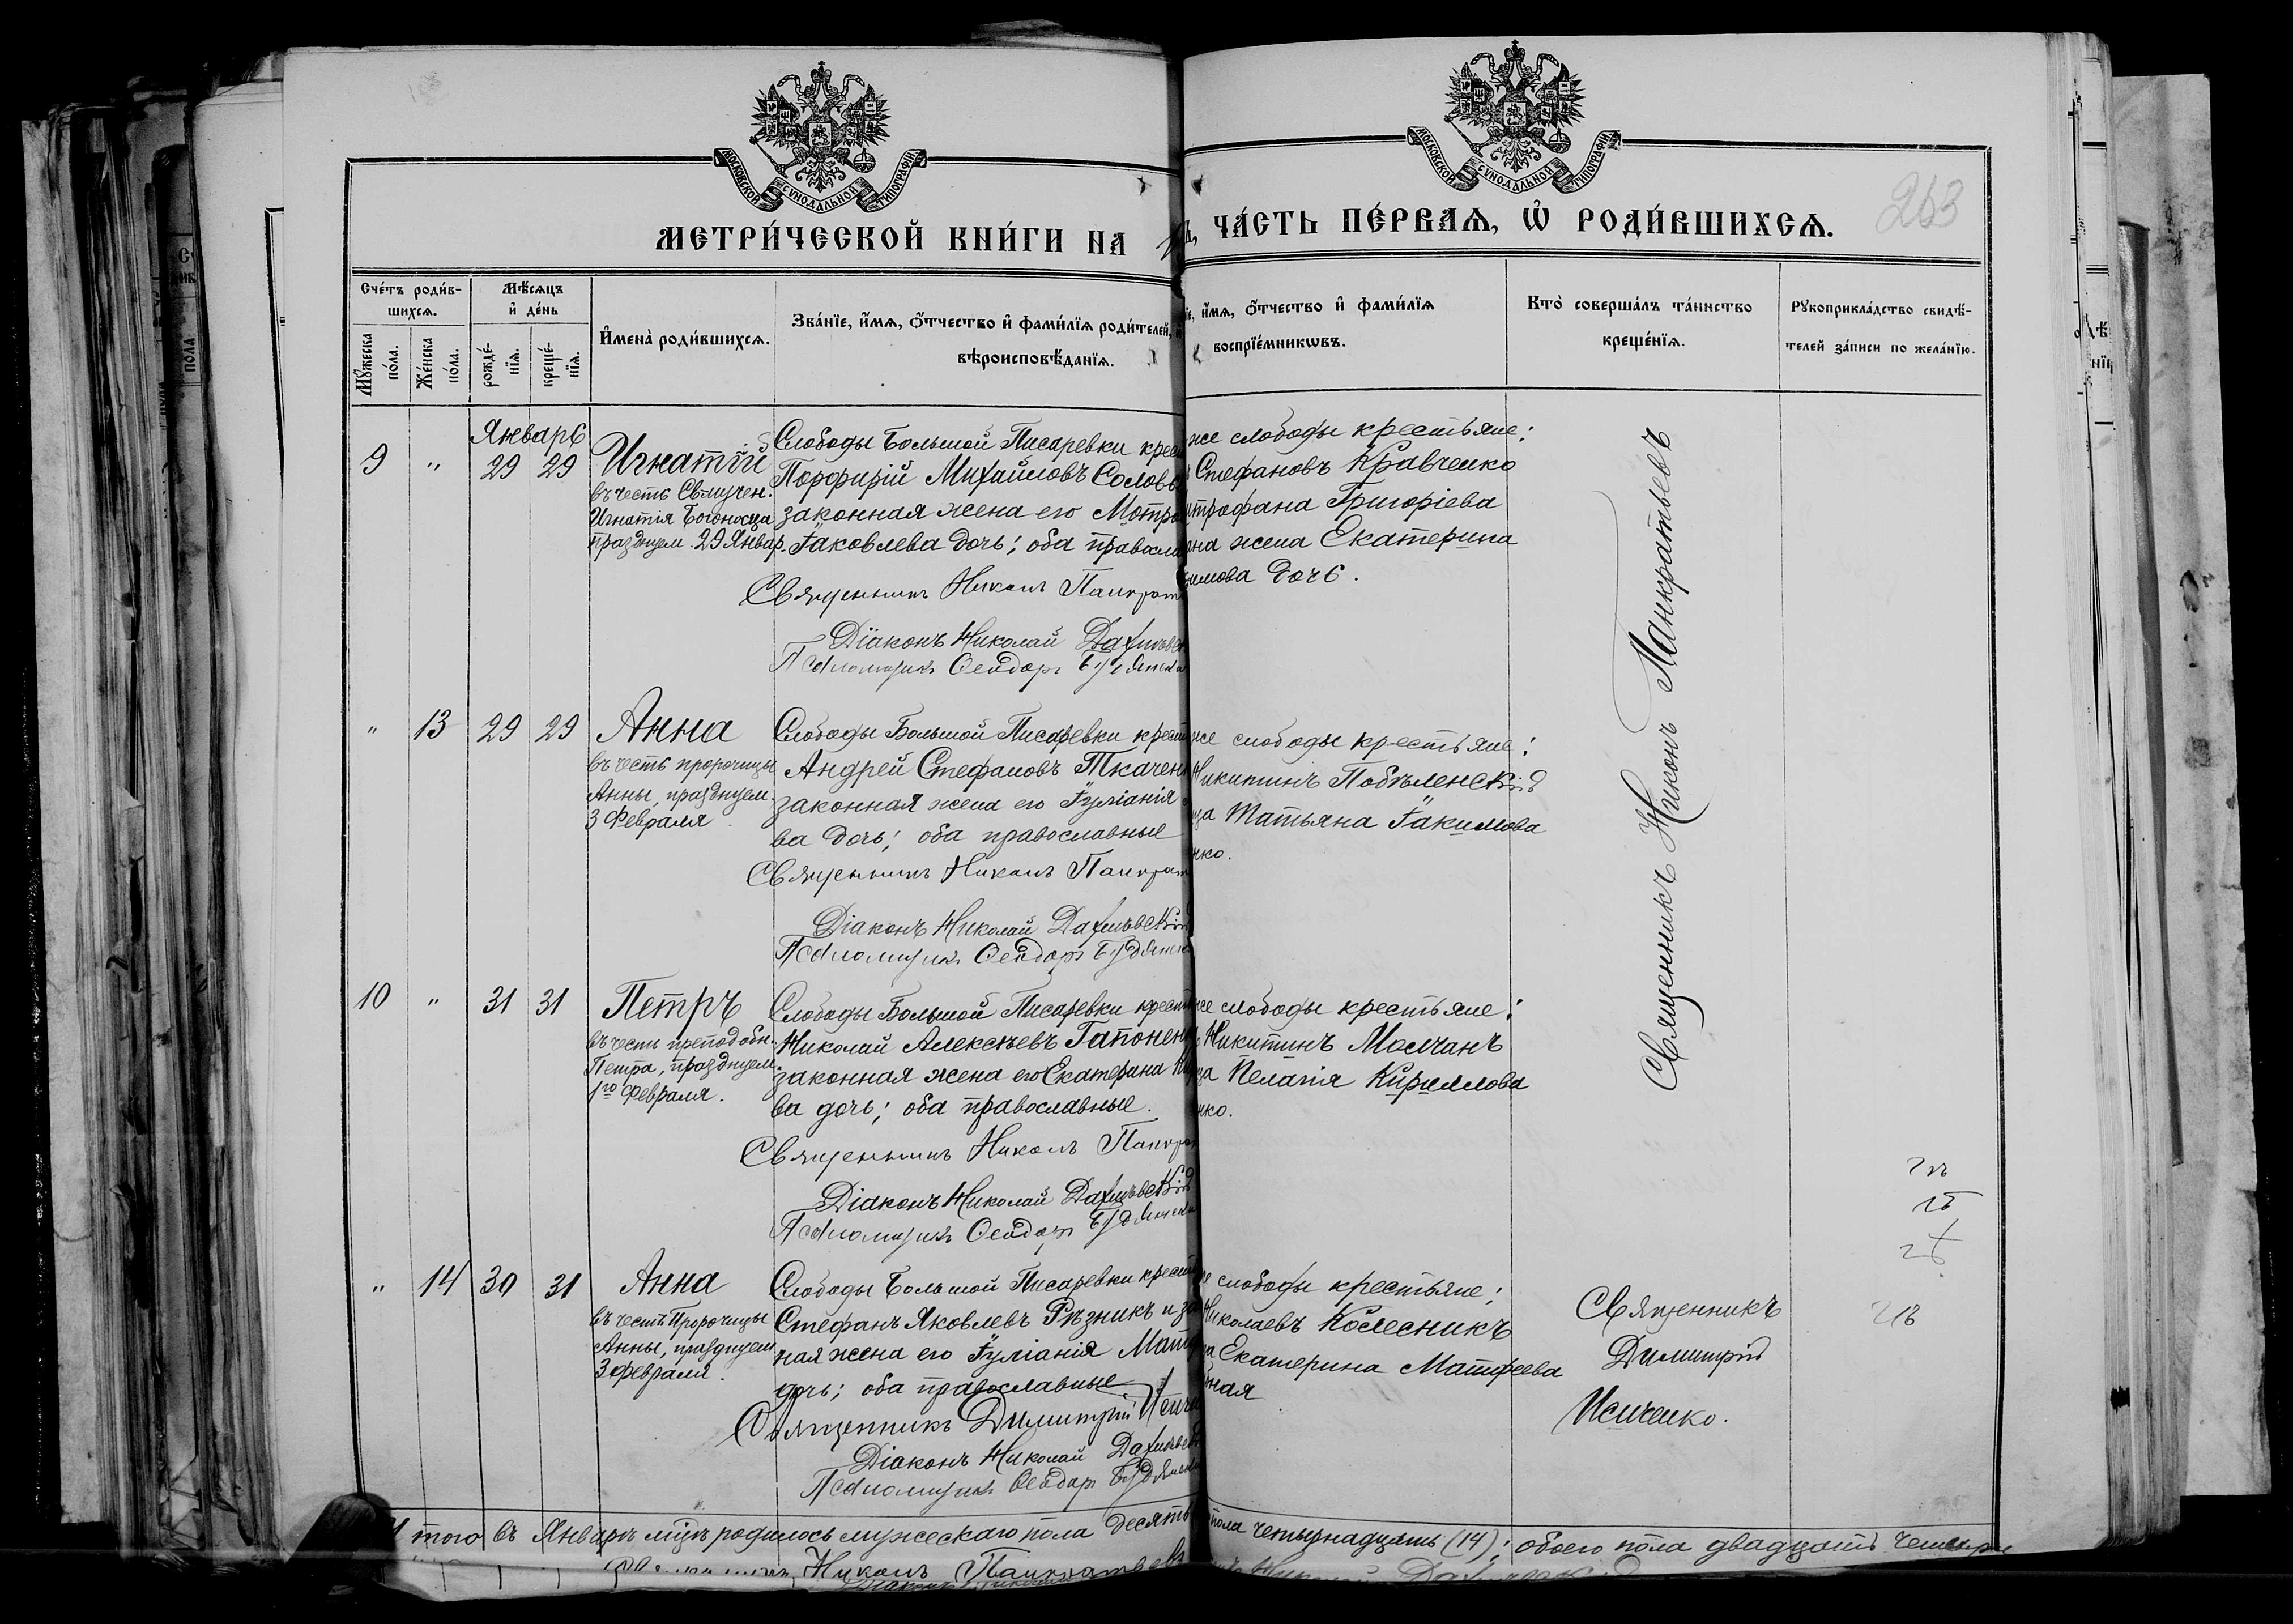 МОСКОВСКОЙ СѴНОДАЛЬНОЙ ТИПОГРАФІИ
МОСКОВСКОЙ СѴНОДАЛЬНОЙ ТИПОГРАФІИ
263
МЕТРИ́ЧЕСКОЙ КНИ́ГИ НА
ЧА́СТЬ ПЕ́РВАѦ, Ѡ҆ РОДИ́ВШИХСѦ.
Сче́тъ роди́в-
шихсѧ.
Мꙋ́жеска
по́ла.
Же́нска
по́ла.
Мѣ́сѧцъ
и҆ де́нь
рожде́-
нїѧ.
креще́-
нїѧ.
И҆мена̀ роди́вшихсѧ.
Зва́нїе, и҆́мѧ, ѻ҆́тчество и҆ фами́лїѧ роди́телей,
вѣроисповѣ́данїѧ.
и҆́мѧ, ѻ҆́тчество и҆ фами́лїѧ
воспрїе́мникѡвъ.
Кто̀ соверша́лъ та́инство
креще́нїѧ.
Рꙋкоприкла́дство свидѣ́-
телей за́писи по жела́нїю.
Январь
9 " 29 29
Игнатій
въ честь Свмучен.
Игнатія Богоносца
празднуем. 29 Январ.
Слободы Большой Писаревки крес
Порфирій Михайловъ Солов
законная жена его Мотро
Іаковлева дочь; оба правосла
Священникъ Никонъ Панкрат
Діаконъ Николай Дахнѣвск
Псаломщикъ Ѳеодоръ Будянск
же слободы крестьяне:
Стефановъ Кравченко
итрофана Григоріева
она жена Екатерина
кимова дочь.
Священникъ Никонъ Панкратьевъ
" 13 29 29
Анна
въ честь пророчицы
Анны, празднуем.
3 Февраля
Слободы Большой Писаревки крест
Андрей Стефановъ Ткачен
законная жена его Іуліанія
ва дочь; оба православные
Священникъ Никонъ Панкрат
Діаконъ Николай Дахнѣвскій
Псаломщикъ Ѳеодоръ Будянск
же слободы крестьяне:
Никитинъ Побѣленскій
ца Татьяна Іакимова
нко.
10 " 31 31
Петръ
въ честь преподобн.
Петра, празднуем.
1го Февраля.
Слободы Большой Писаревки крест
Николай Алексѣевъ Гапонен
законная жена его Екатерина
ва дочь; оба православные.
Священникъ Никонъ Панкра
Діаконъ Николай Дахнѣвскій
Псаломщикъ Ѳеодоръ Будянск
же слободы крестьяне:
Никитинъ Молчанъ
ца Пелагія Кириллова
нко.
" 14 30 31
Анна
въ честь Пророчицы
Анны, празднуем
3 февраля.
Слободы Большой Писаревки крест
Стефанъ Яковлевъ Рѣзникъ и за
ная жена его Іуліанія Матѳ
дочь; оба православные
Священникъ Димитрій Исиче
Діаконъ Николай Дахнѣвск
Псаломщикъ Ѳеодоръ Будянск
же слободы крестьяне;
Николаевъ Колесникъ
ца Екатерина Матѳеева
ная
Священникъ
Димитрій
Исиченко.
Итого въ Январѣ мцѣ родилось мужескаго пола десять
пола четырнадцать (14); обоего пола двадцать четыре
Священникъ Никонъ Панкратьевъ